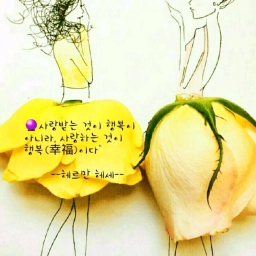 🔮사랑받는 것이 행복이
아니라, 사랑하는 것이
행복(幸福)이다"
--헤르만 헤세--